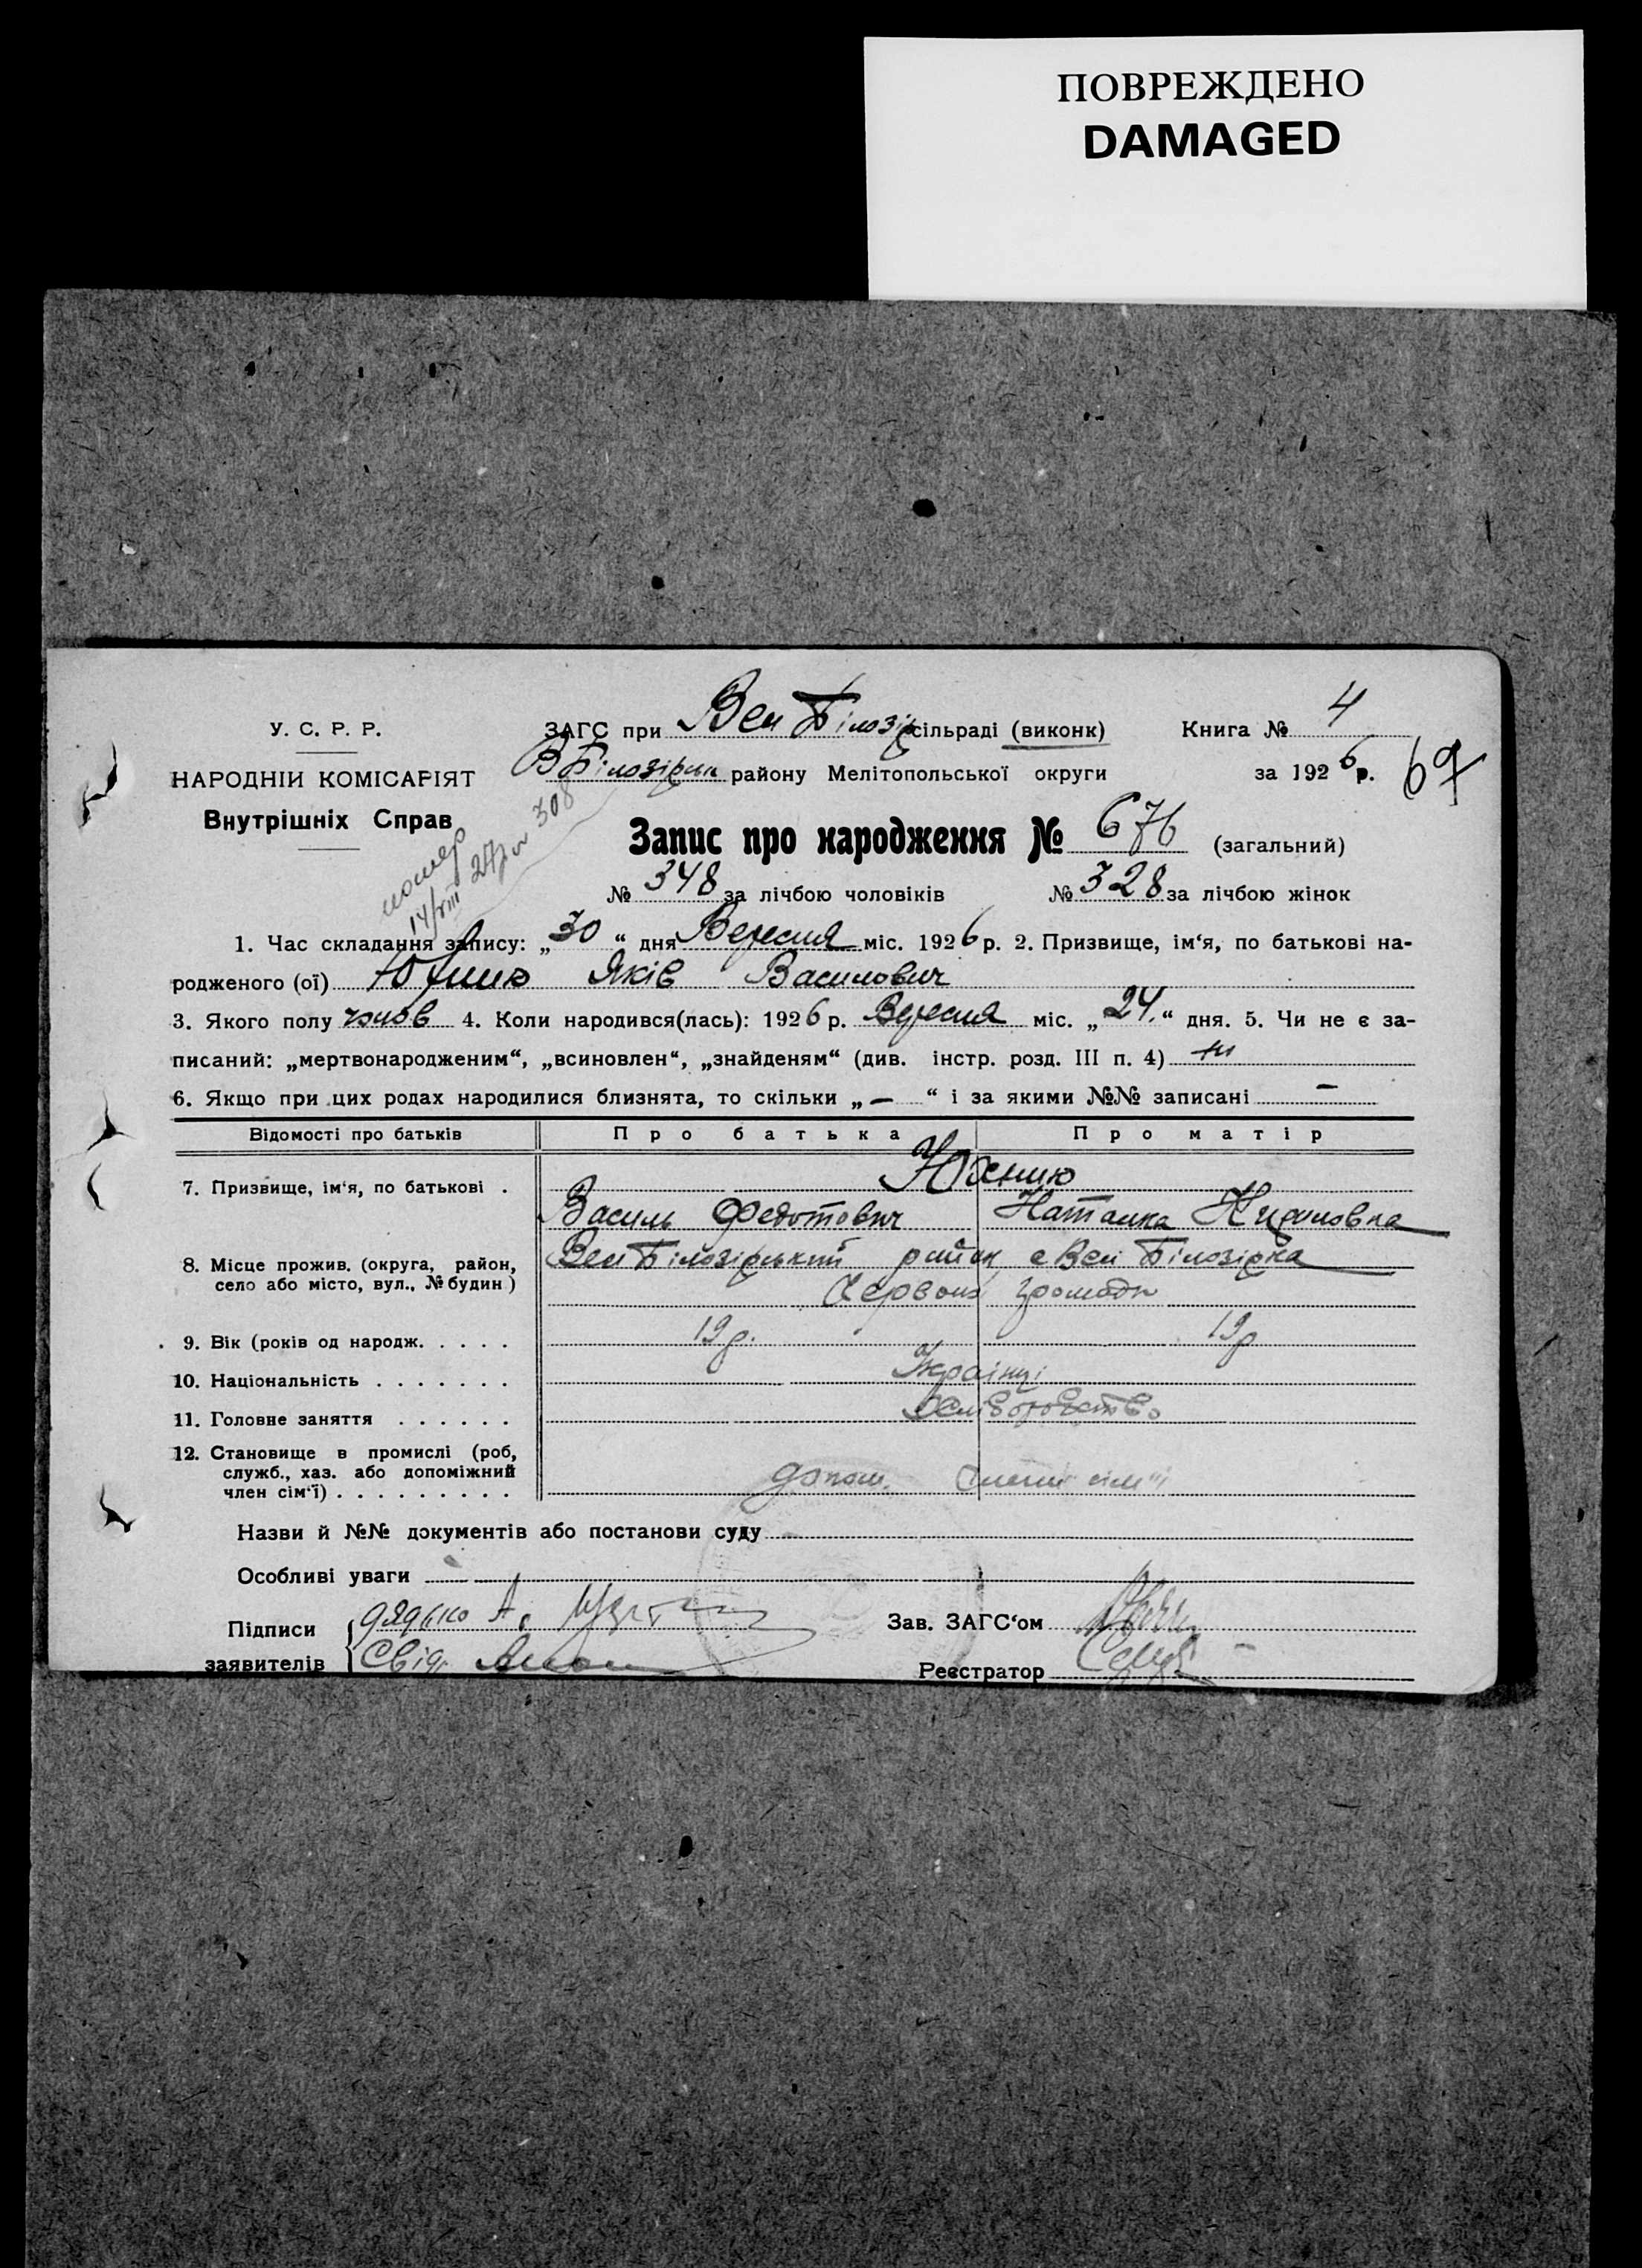 ПОВРЕЖДЕНО
DAMAGED
У. С. Р. Р.
НАРОДНІЙ КОМІСАРІЯТ
Внутрішніх Справ
ЗАГС при Вел Білозір сільраді (виконк)
В Білозірськ району Мелітопольської округи
Книга № 4
за 1926 р.
67
помер
14/VIII 27 р № 308
Запис про народження № 676 (загальний)
№ 348 за лічбою чоловіків № 328 за лічбою жінок
1. Час складання запису: „30“ дня Вересня міс. 1926 р. 2. Призвище, ім‘я, по батькові на-
родженого (ої) Юхник Яків Василович
3. Якого полу чолов 4. Коли народився(лась): 1926 р. Вересня міс. „24.“ дня. 5. Чи не є за-
писаний: „мертвонародженим“, „всиновлен“, „знайденям“ (див. інстр. розд. III п. 4) ні
6. Якщо при цих родах народилися близнята, то скільки „—“ і за якими №№ записані —
Відомості про батьків Про батька Про матір
7. Призвище, ім‘я, по батькові . Юхник
Василь Федотович Наталка
8. Місце прожив. (округа, район,
село або місто, вул., № будин)
Вел Білозірський район с Вел Білозірка
Червона громада
9. Вік (років од народж. . . . . 19 р. 19 р
10. Національність . . . . . . . Українці
11. Головне заняття . . . . . . Хліборобство
12. Становище в промислі (роб,
служб., хаз. або допоміжний
член сім‘ї) . . . . . . . . . допом. члени сім"ї
Назви й №№ документів або постанови суду
Особливі уваги —
Підписи дядько А.
заявителів Свід.
Зав. ЗАГС‘ом
Реєстратор